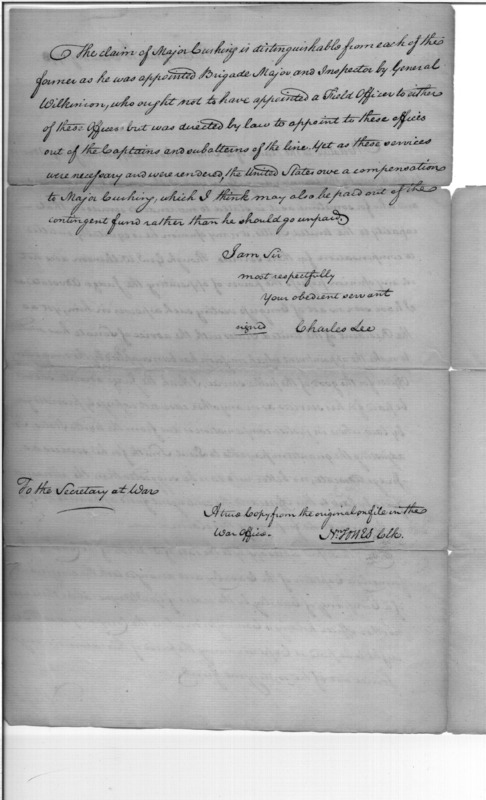 The claim of Major Cushing is distinguishable from each of the
former as he was appointed Brigade Major and Inspector by General
Wilkinson, who ought not to have appointed a Field Officer to either
of these Offices but was directed by law to appoint to these offices
out of the Captains and subalterns of the line. Yet as these services
were necessary and were rendered, the United States owe a compensation
to Major Cushing, which I think may also be paid out of the
contingent fund rather than he should go unpaid.
I am Sir
most respectfully
Your obedient servant
signed Charles Lee
To the Secretary at War
A true Copy from the original on file in the
War Office.
Nn. Jones Clk.